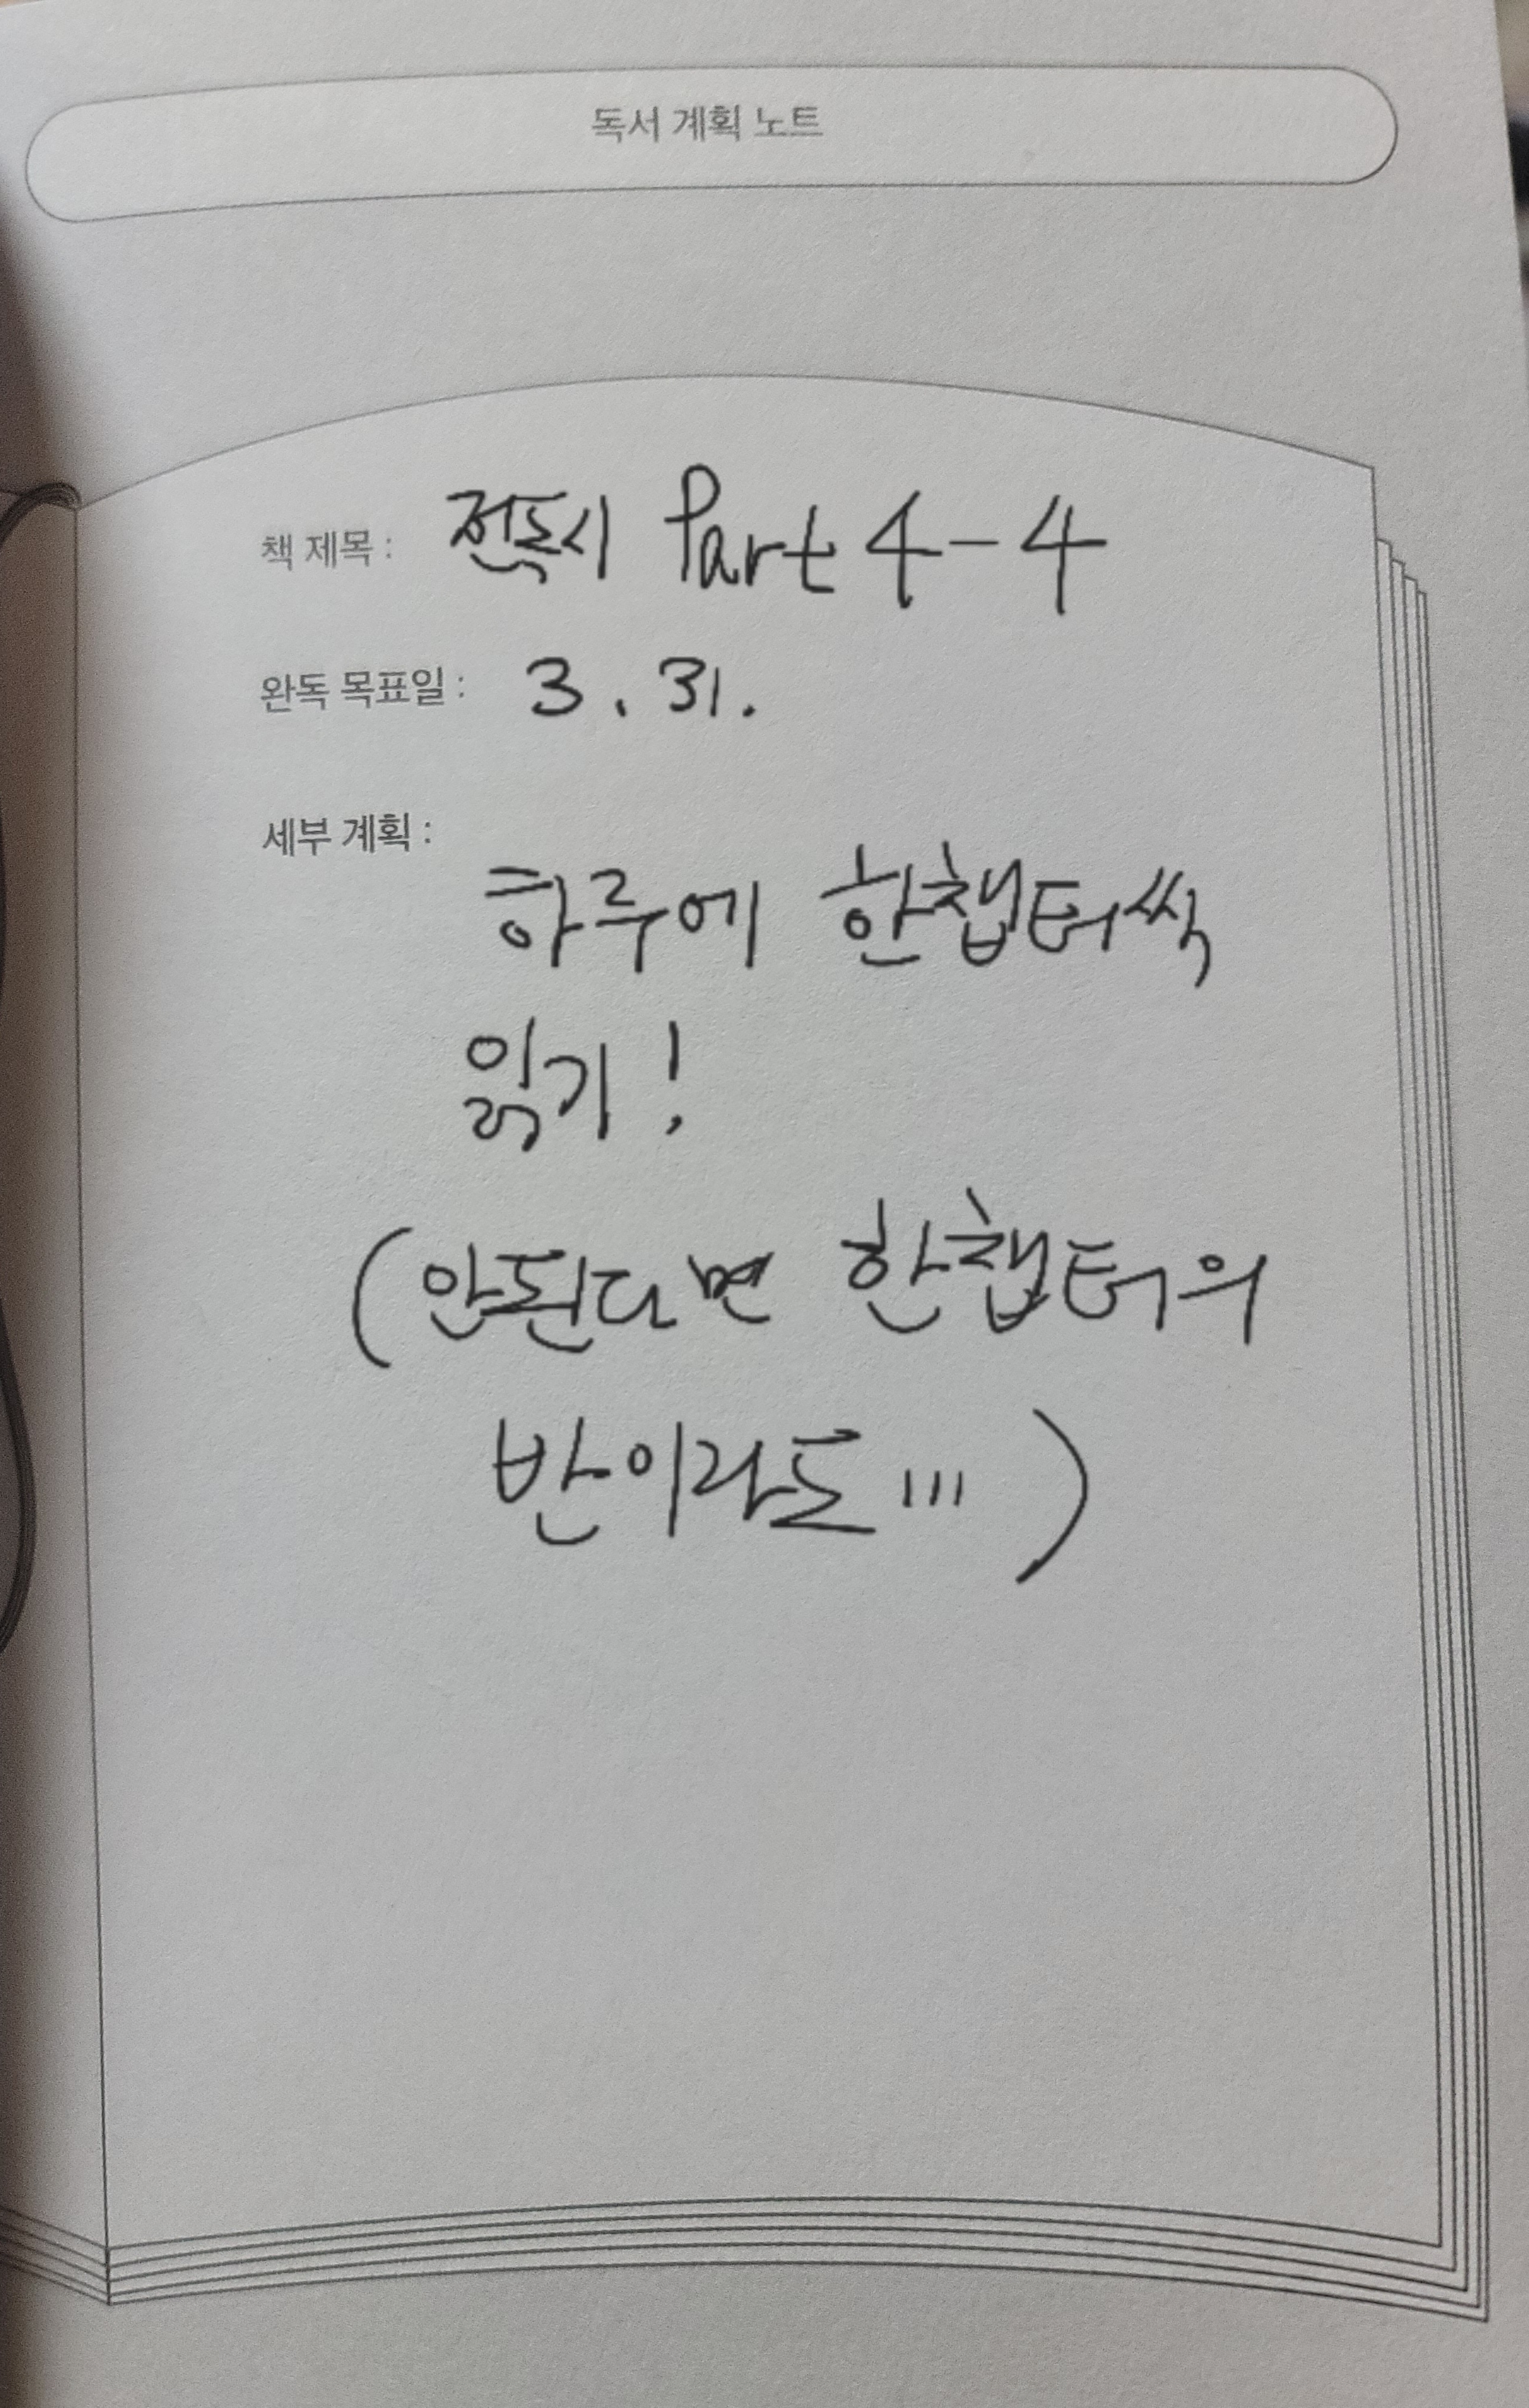 독서 계획 노트
책 제목 : 전독시 Part 4-4
완독 목표일 : 3. 31.
세부 계획 :
하루에 한챕터씩
읽기!
(안된다면 한챕터의
반이라도...)